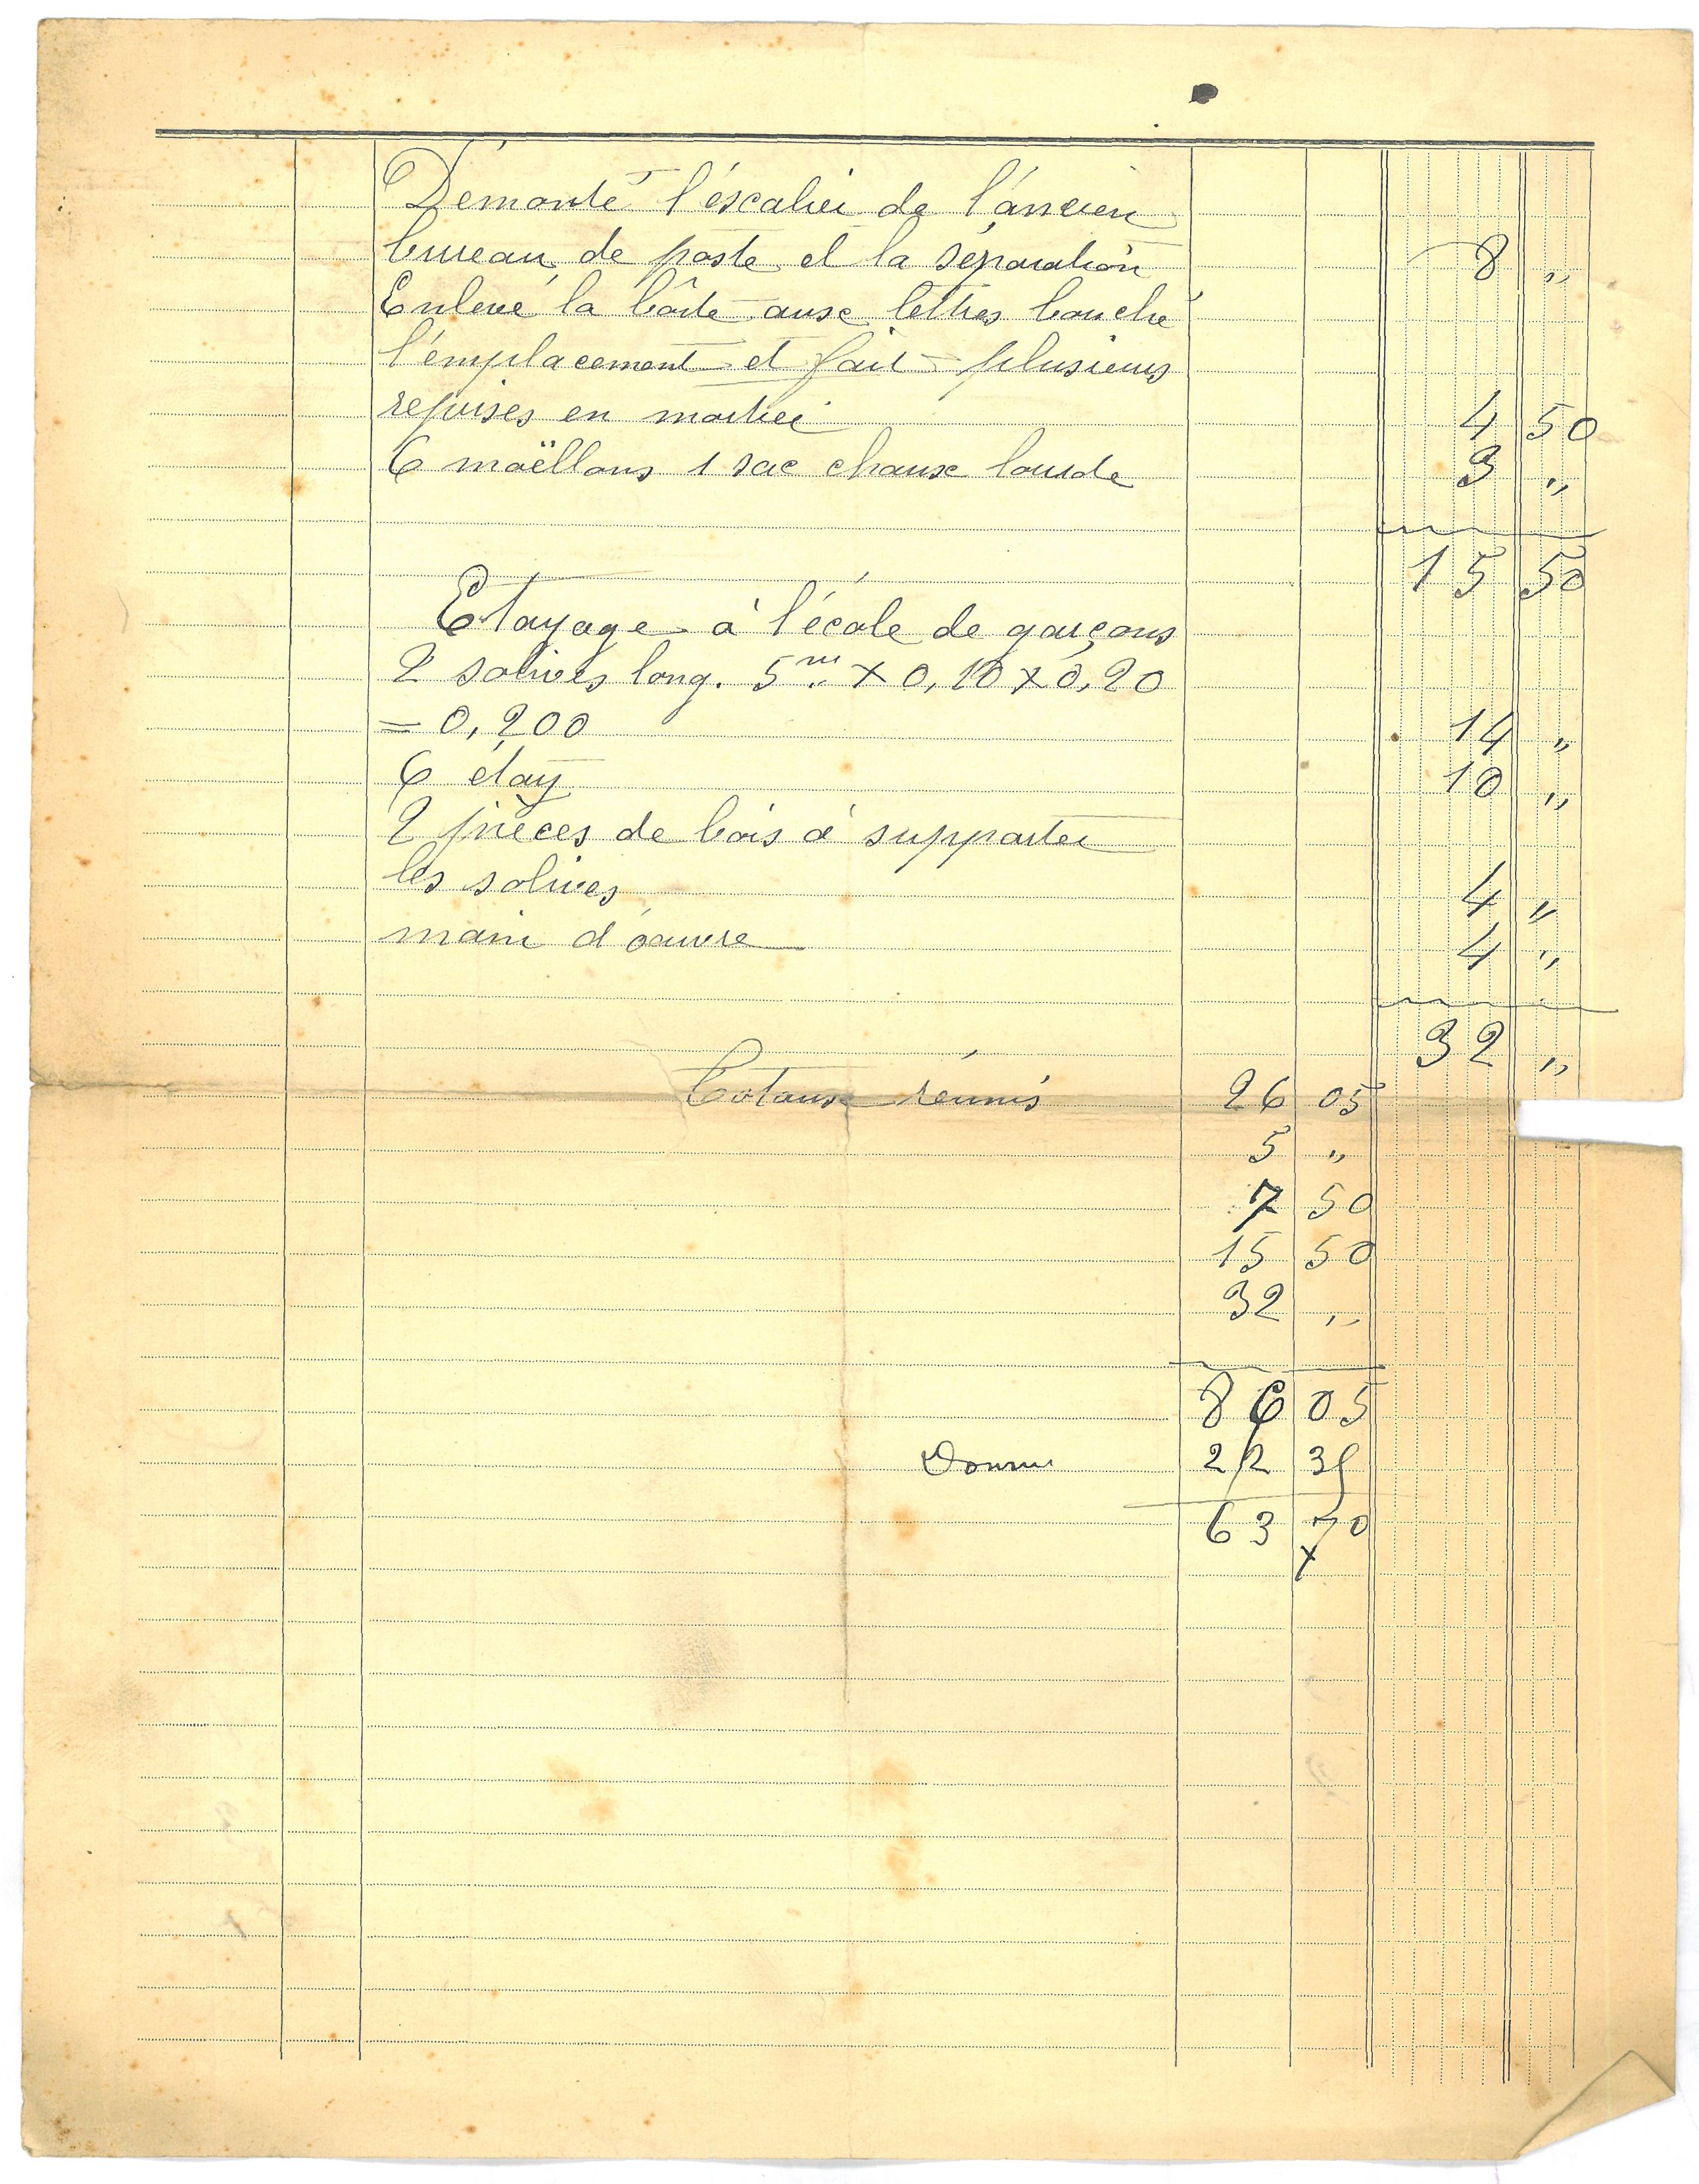 Démonté l'éscalier de l'ancien
bureau de poste et la séparation 8 "
Enlevé la bôite aux lettres bouché
l'émplacement et fait plusieurs
reprises en mortier 4 50
6 moëllons 1 sac chaux lourde 3 "
15 50
Etayage à l'école de garçons
2 solives long. 5m" x 0,10 x 0,20
= 0,200 14 "
6 étay 10 "
2 pièces de bois à supporter
les solives 4 "
main d'oeuvre 4 "
32 "
Totaux réunis 26 05
5 "
7 50
15 50
32 "
86 05
22 35
63 70
x